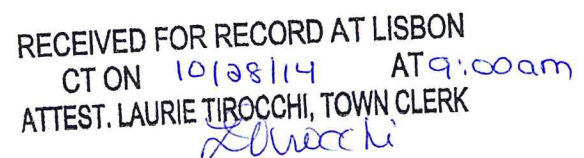 RECEIVED FOR RECORD AT LISBON
CT ON 10/28/14 AT 9:00am
ATTEST. LAURIE TIROCCHI, TOWN CLERK
LTirocchi